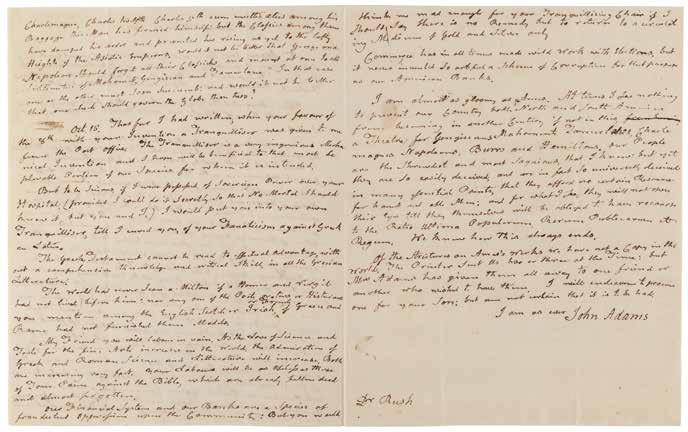 Charlemagne, Charles twelfth Charles 5th even meditated among his
have damped his ardor and prevented his rising as yet to the lofty
Heights of the Asiatic Emperors, would it not be better that George and
Napoleon should forget all their Classicks and mount at one to all
Sublimities of Mahomet, Gengizcan and Tamerlane. In that case
one or the other must soon succumb: and would it not be better
that one such should govern the Globe than two?
Oct. 15. Thus far I had written, when your favour of
the 8th with your Invention a Tranquilliser was given to me
from the Post office. The Tranquilliser is a very ingenious Mecha-
nical Invention and I hope will be beneficial to that most de-
plorable Portion of our Species for whom it is intended.
But to be serious, if I were possessed of Sovereign Power over your
Hospital, (provided I could do it secretly so that No Mortal should
know it, but you and I,) I would put you into your own
Tranquilliser, till I cured you of your Fanaticism against Greek
and Latin.
The Greek Testament cannot be read to effectual advantage with-
out a comprehensive knowledge and critical Skill in all the Grecian
Litterature.
The World had never seen a Milton if a Homer and Virgil
had not lived before him: nor any one of the Poets Orators or Historians
you mention among the English Scotch or Irish if Greece and
Rome had not furnished them Models.
My Friend you will labour in vain. As the Love of Science and
Taste for the fine Arts increases in the World, the Admiration of
Greek and Roman Science and Litterature will increase. Both
are increasing very fast. Your Labours will be as useless as those
of Tom Paine against the Bible, which are already fallen dead
and almost forgotten.
Our Financial System and our Banks are a Species of
fraudulent oppression upon the Community: But you would
think me mad enough for your Tranquillising Chair if I
should say there is no Remedy but to return to a circulat-
ing Medium of Gold and Silver only
Commerce has in all times made wild work with Elections, but
it never invented so artful a Scheme of Corruption for that purpose
as our American Banks.
I am almost as gloomy as Ames. At times I see nothing
to prevent our Country both North and South America
from becoming in another Century, if not in this
a Theatre for Gengizcans Mahomets Tamerlanes, Charle
magnes Napoleons, Burrs and Hamiltons. Our People
are the shrewdest and most sagacious that I know: but yet
they are so easily deceived, and are in fact so universally deceived
in many essential Points, that they afford no certain Resource
for honest Men; and for what I see, they will not open
their Eyes till they themselves will be obliged to have recourse
to the Ratio Ultima Populorum Rerum Publicarum et
Regum. We know how this always ends.
Of the Strictures on Ames's Works we have not a Copy in the
World. The Printer sends me two or three at the Time: but
Mrs Adams has given them all away to one friend or
another who wished to have them. I will endeavour to procure
one for your Son; but am not certain that it is to be had.
I am as ever John Adams
Dr Rush